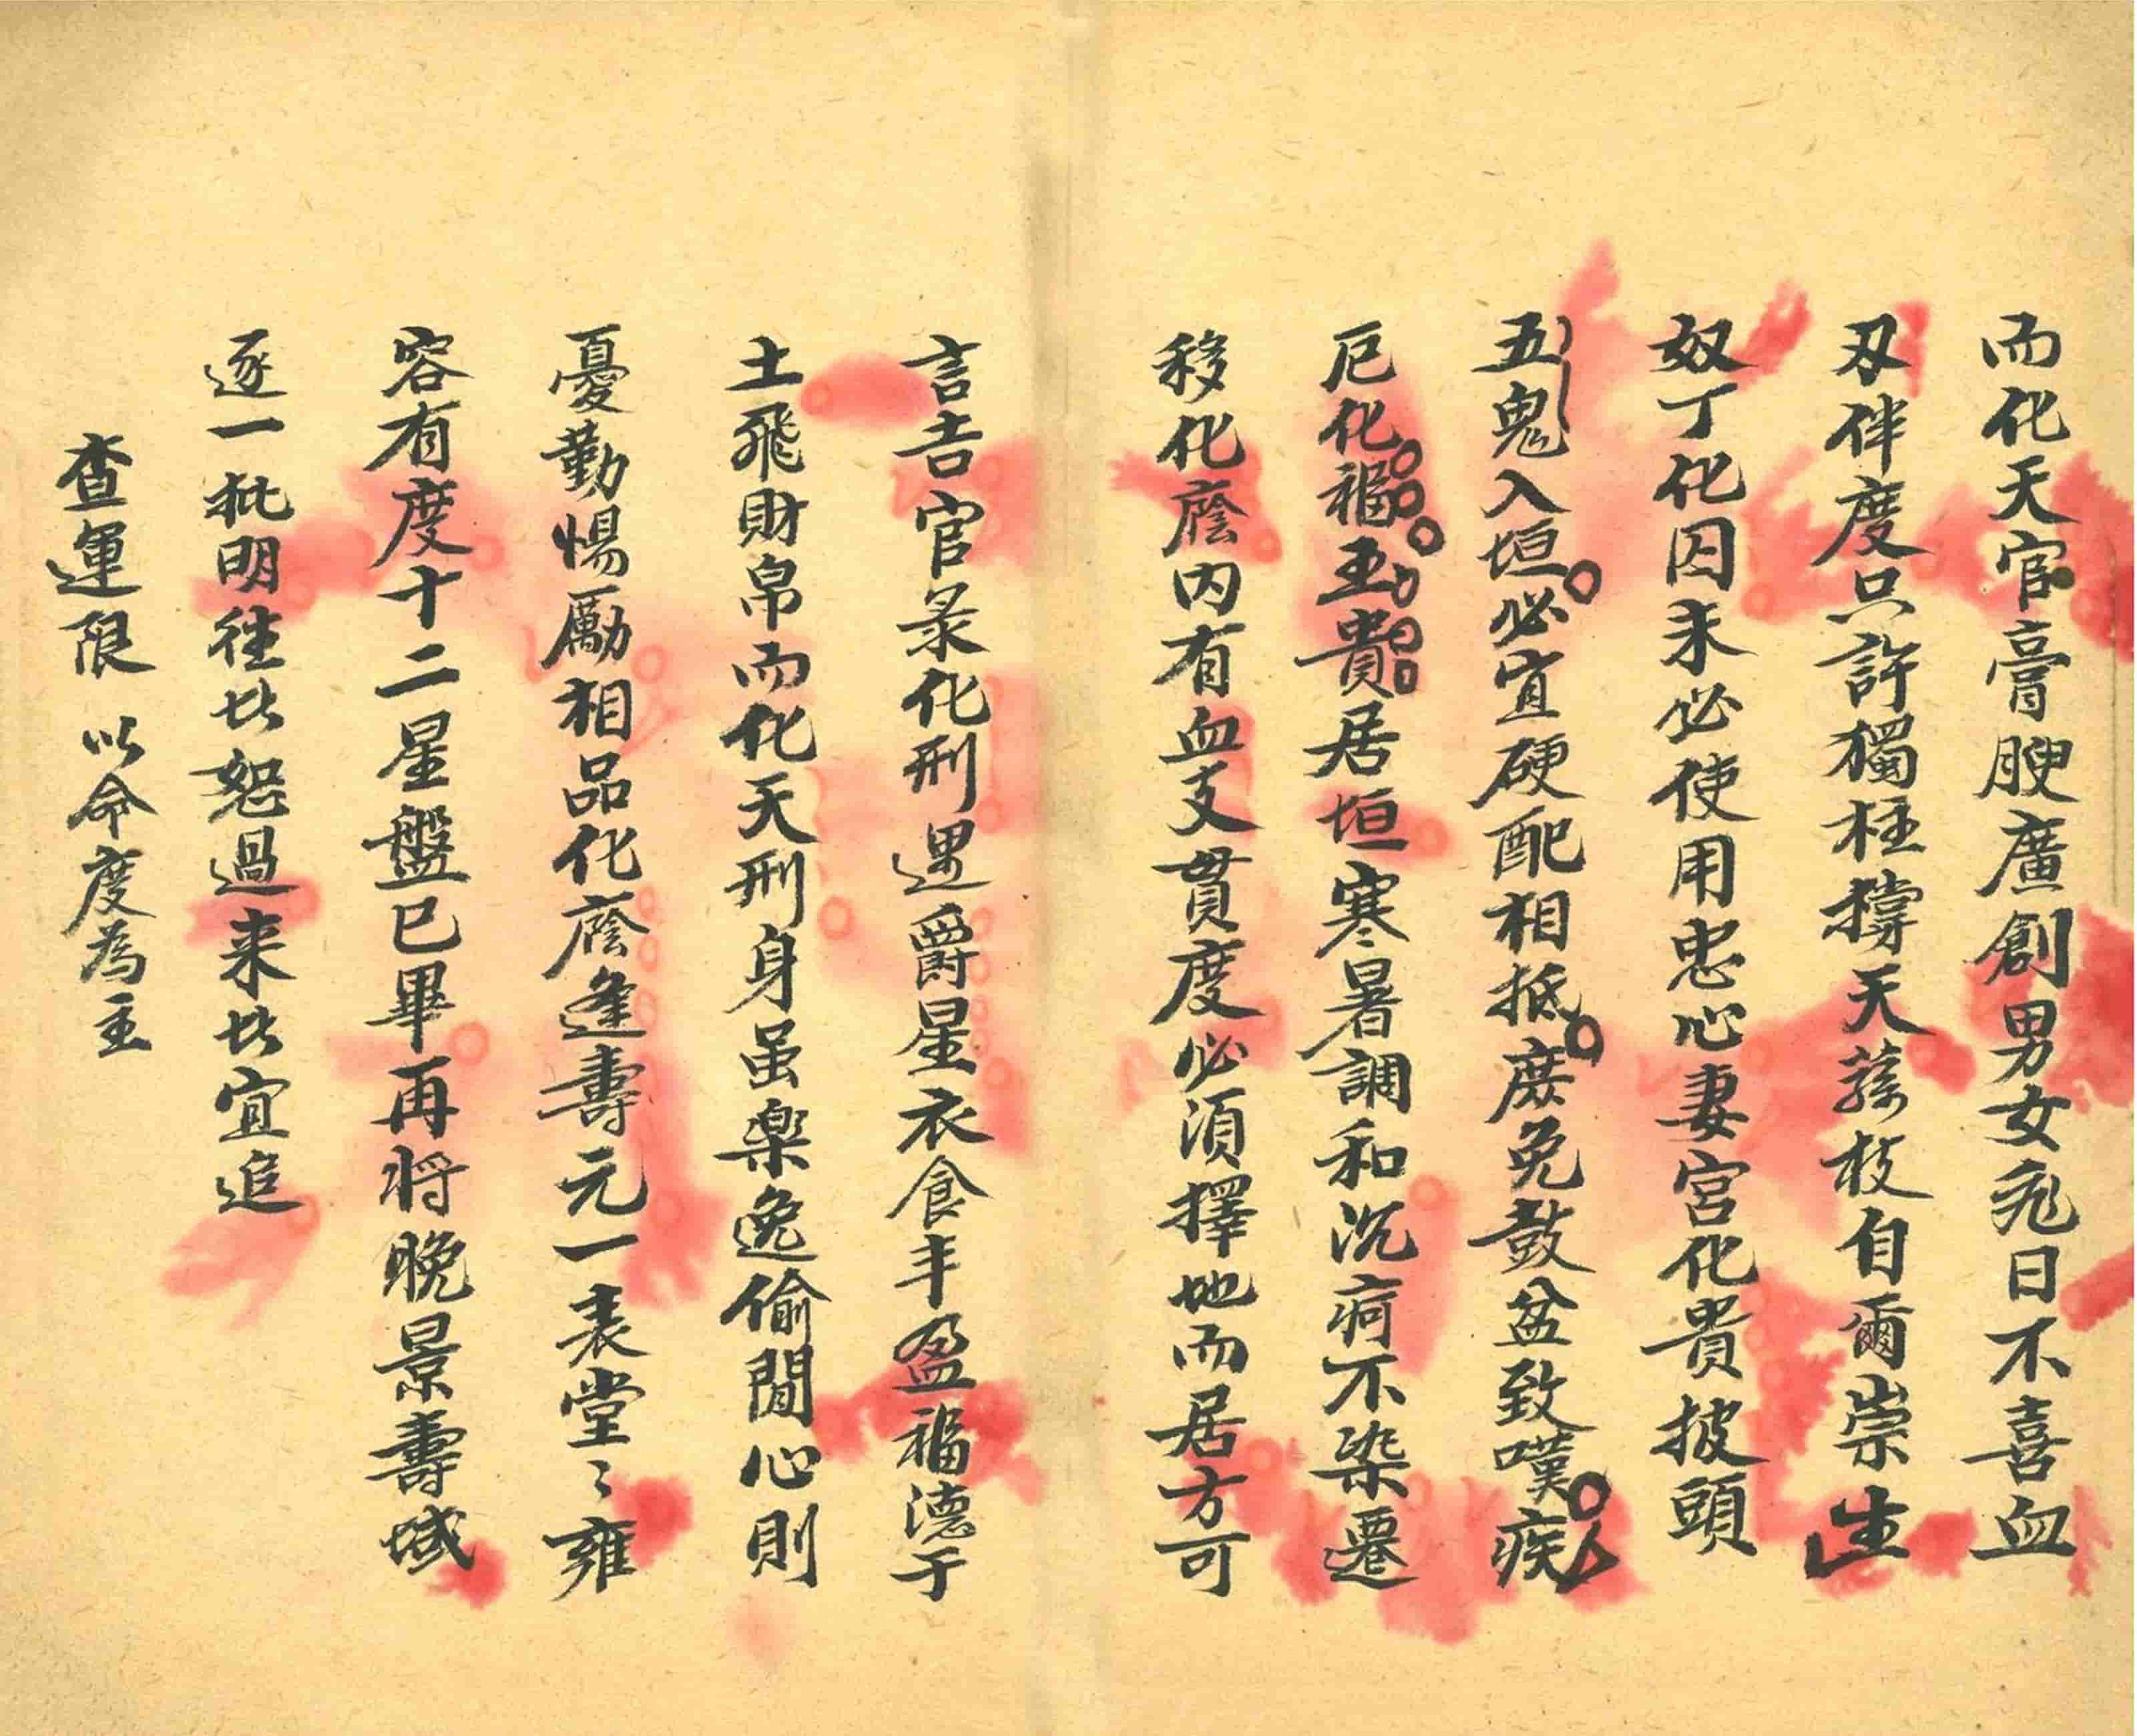 而化天官膏腴廣創男女死日不喜血
刃伴度只許獨柱撐天蔴枝自爾崇生
奴丁化囚未必使用忠心妻宮化貴披頭
五鬼入垣必宜硬配相抵庶免鼓盆致嘆疾
厄化福玉貴居垣寒暑調和沉疴不染遷
移化廕内有血支貫度必須擇地而居方可
言吉官彔化刑遇爵星衣食丰盈福德于
土飛財帛而化天刑身虽楽逸偷閒心則
憂勤惕勵相品化廕逢壽元一表堂〻雍
容有度十二星盤已畢再将晚景壽域
逐一批明往此恕過来此宜追
查運限 以命度為主